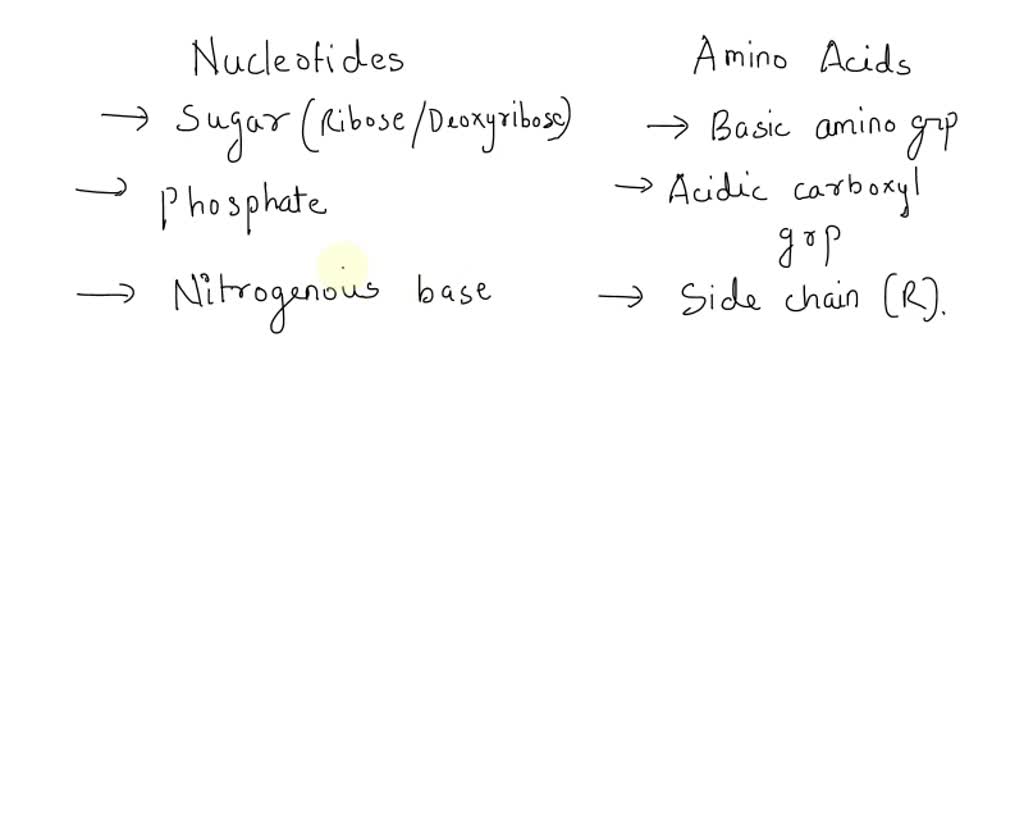 Nucleotides
→ Sugar (Ribose/Deoxyribose)
→ Phosphate
→ Nitrogenous base
Amino Acids
→ Basic amino grp
→ Acidic carboxyl
grp
→ Side chain (R).